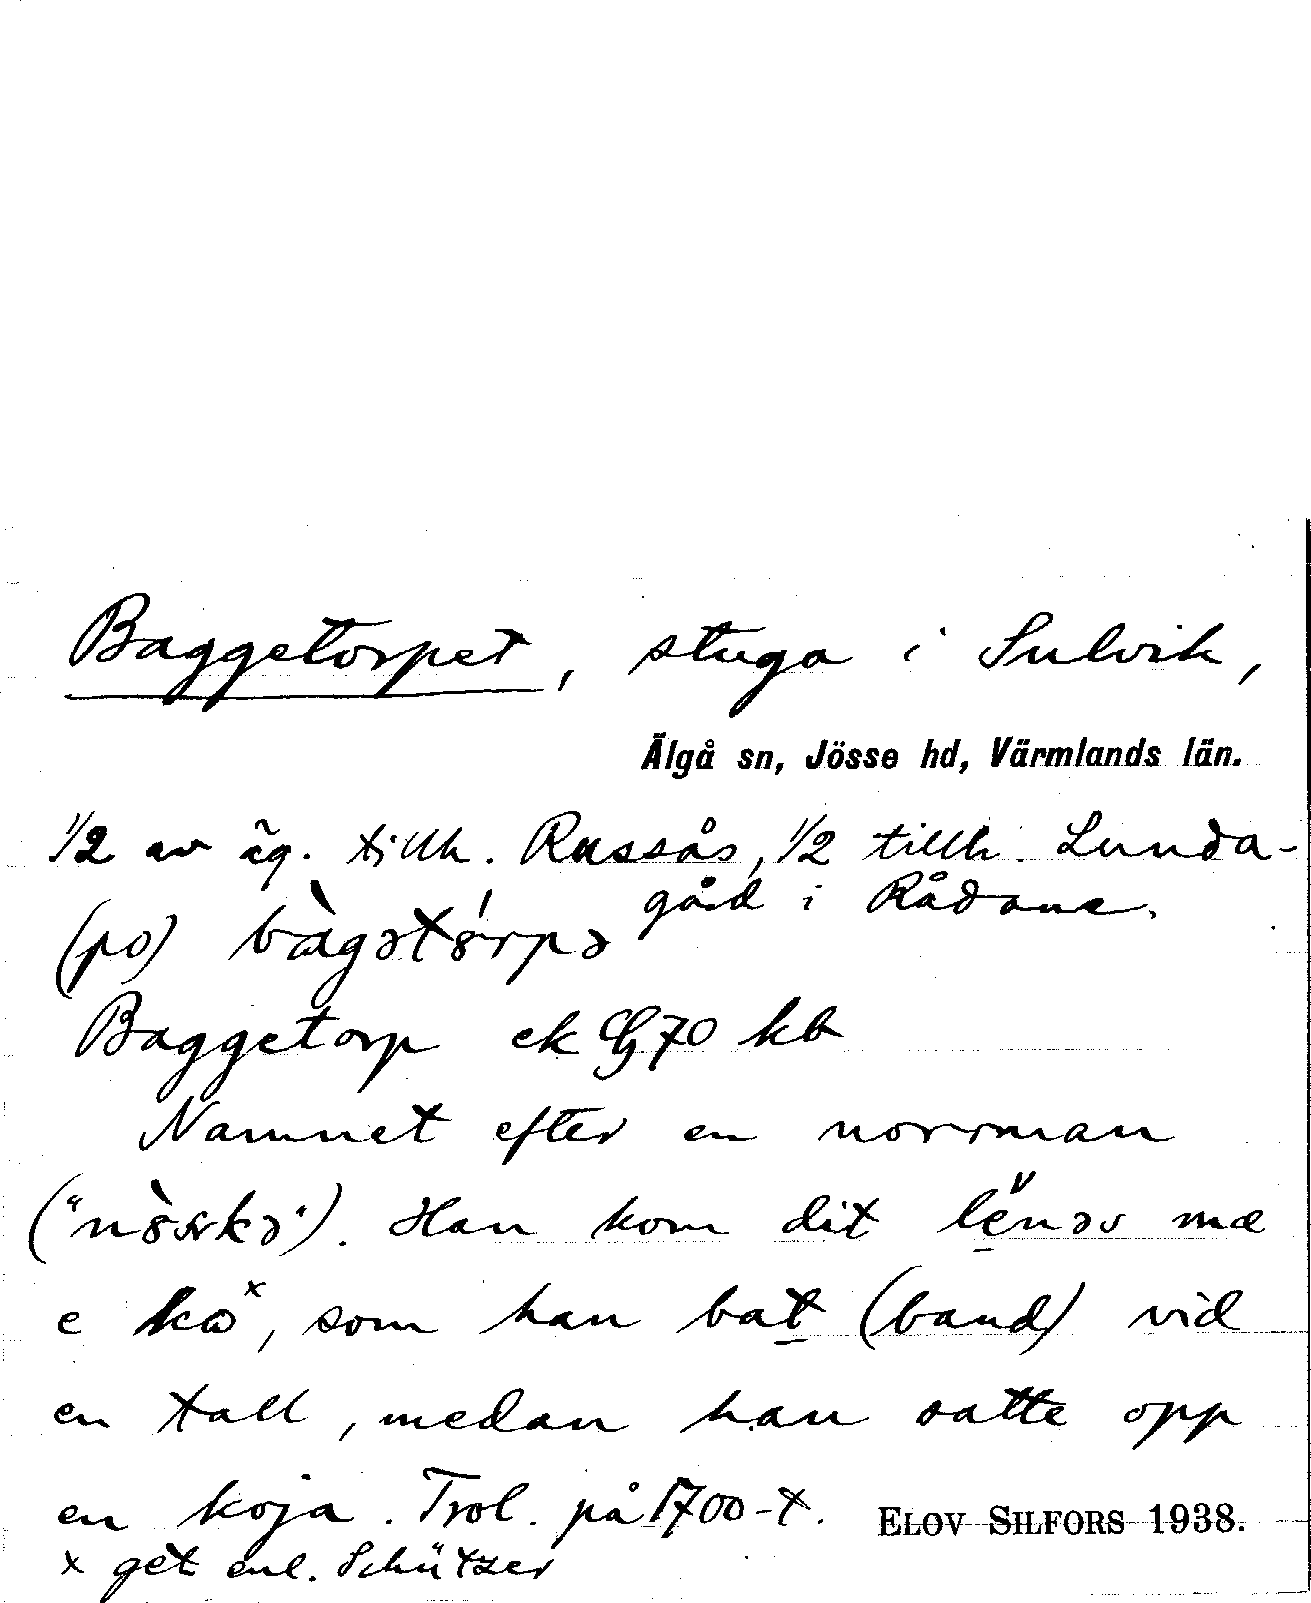 Baggetorpet, stuga i Sulvik,
Älgå sn, Jösse hd, Värmlands län.
1/2 av äg. tillh. Rassås, 1/2 tillh. Lunda-
gård i Rådane.
(po) bàgətó̤rpə
Baggetorp ek G 70 kb
Namnet efter en norrman
("nòrskə"). Han kom dit lënəs mæ
e ko x, som han bat (band) vid
en tall, medan han satte opp
en koja. Trol. på 1700-t.
ELOV SILFORS 1938.
x get enl. Schützer